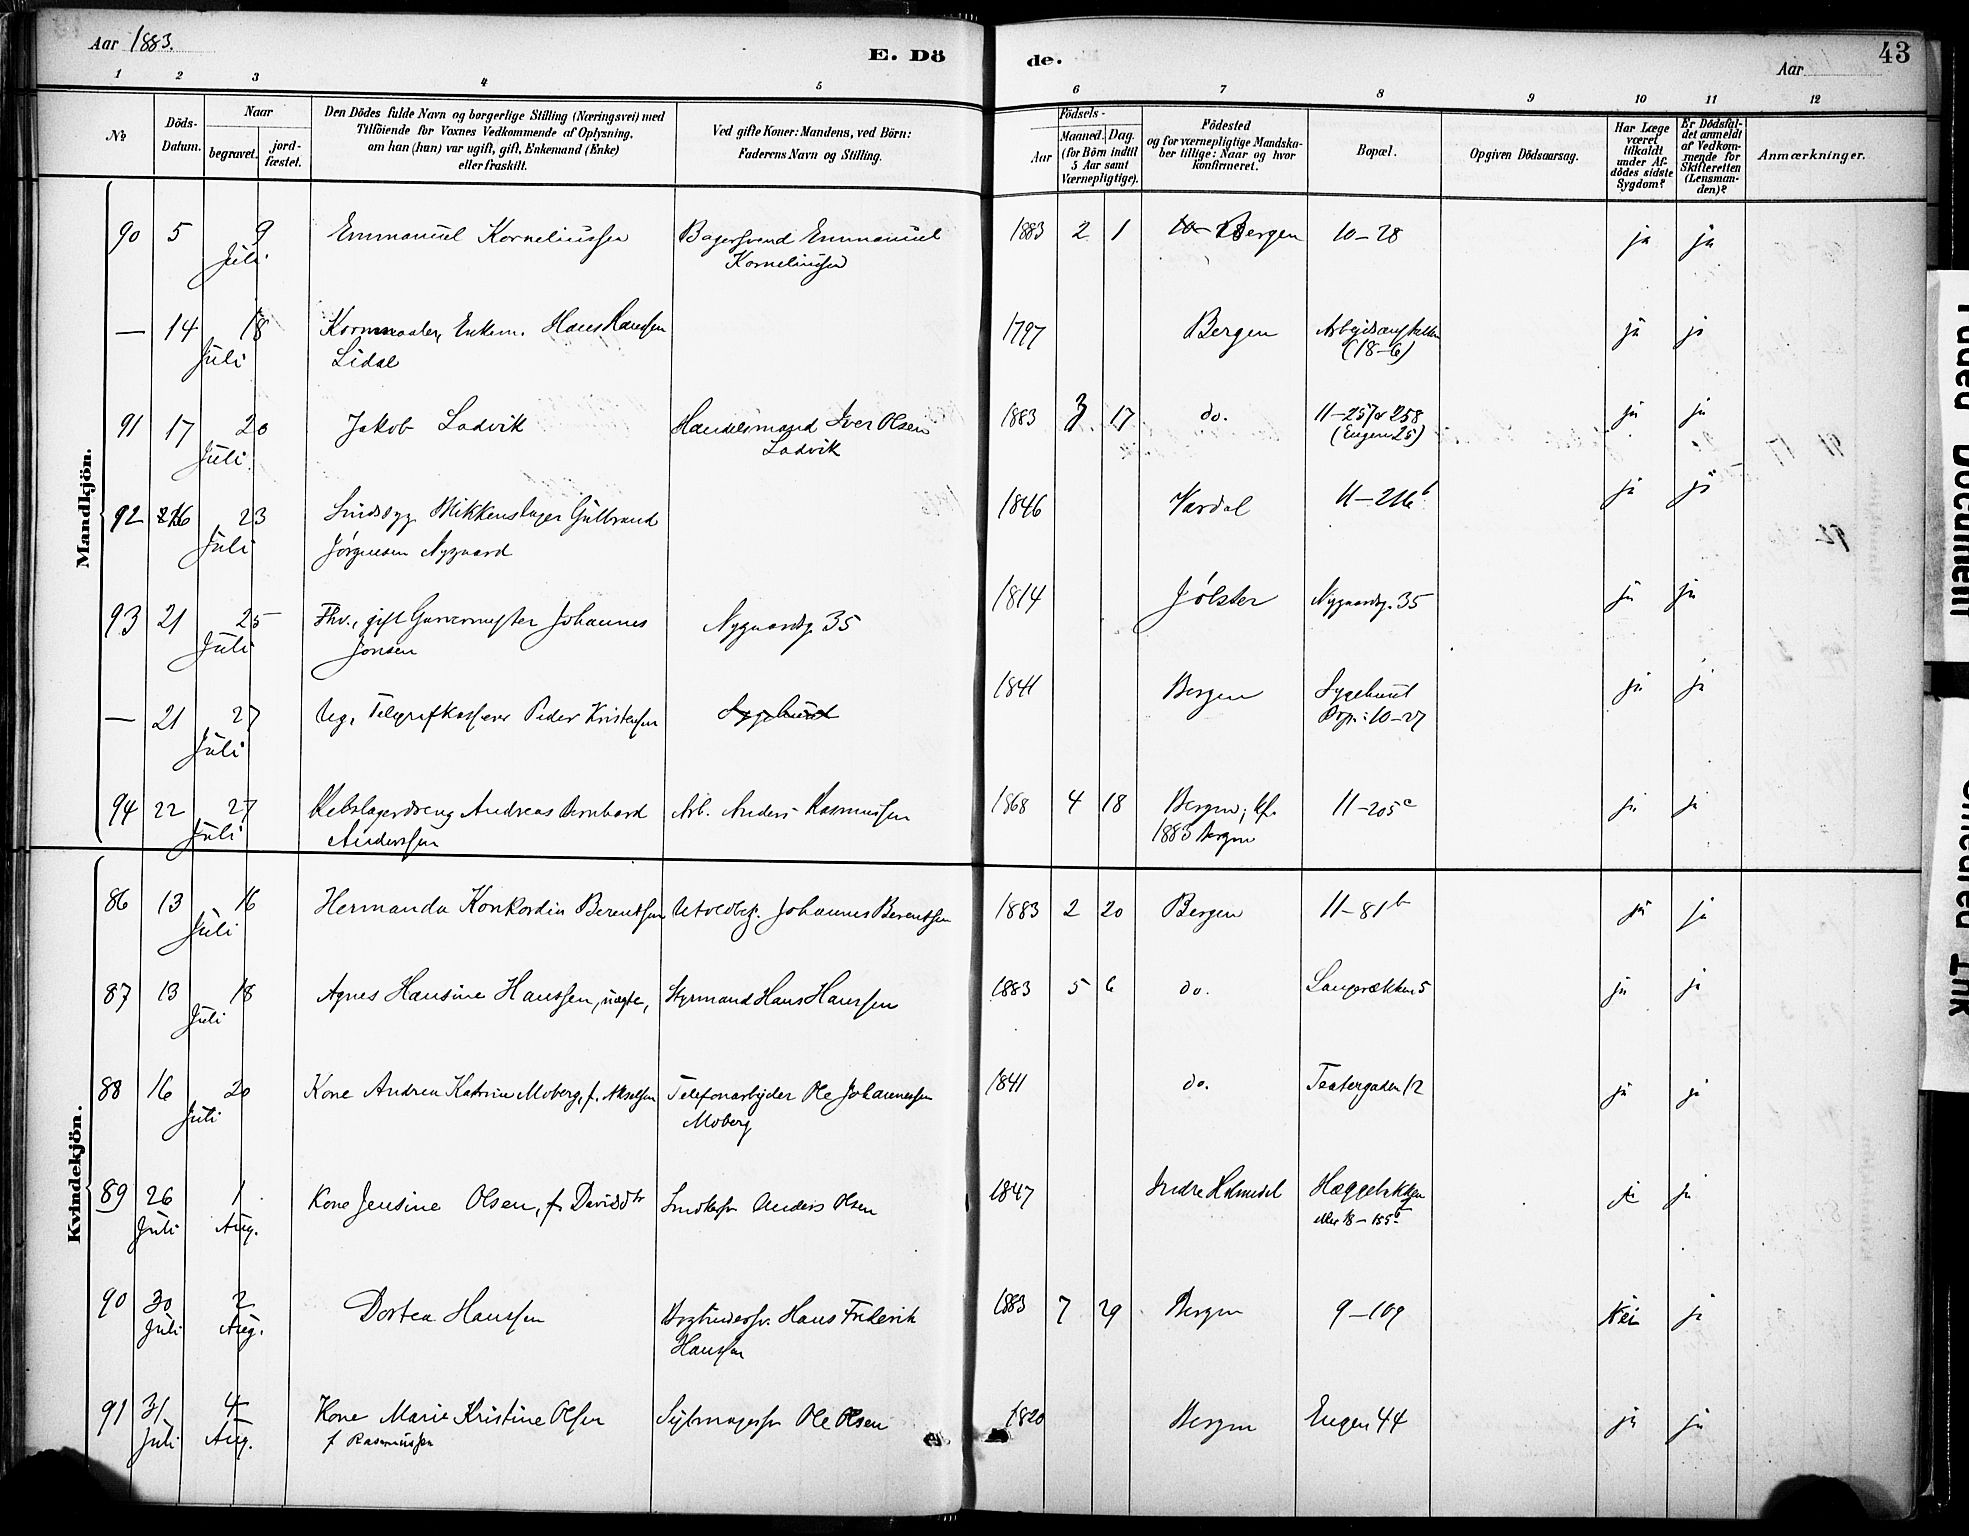 Aar 1883.
E. Dö
de.
Aar
43
1 2 3 4 5
6 7 8 9 10 11 12
№
Döds-
Datum.
Naar
begravet.
jord-
fæstet.
Den Dödes fulde Navn og borgerlige Stilling (Næringsvei) med
Tilföiende for Voxnes Vedkommende af Oplysning,
om han (hun) var ugift, gift, Enkemand (Enke)
eller fraskilt.
Ved gifte Koner: Mandens, ved Börn:
Faderens Navn og Stilling.
Födsels-
Aar
Maaned. Dag.
(for Börn indtil
5 Aar samt
Værnepligtige).
Födested
og for værnepligtige Mandska-
ber tillige: Naar og hvor
konfirmeret.
Bopæl.
Opgiven Dödsaarsag.
Har Læge
været
tilkaldt
under Af-
dödes sidste
Sygdom?
Er Dödsfal-
det anmeldt
af Vedkom-
mende for
Skifteretten
(Lensman-
den)?
Anmærkninger.
Mandkjön.
90 5 9 Emmanuel Korneliussen Bagersvend Emmanuel 1883 2 1 Bergen 10-28 ja ja
Juli Korneliussen
— 14 18 Kornmaaler, Enkem. Hans Hanssen 1797 Bergen Arbeidsanstalten ja ja
Juli Lidal (18-6)
91 17 20 Jakob Ladvik Handelsmand Iver Olsen 1883 3 17 do. 11-257 & 258 ja ja
Juli Ladvik (Engen 25)
92 16 23 Sindssyg Blikkenslager Gulbrand 1846 Vardal 11-216b ja ja
Juli Jørgensen Nygaard
93 21 25 Fhv., gift Garvermester Johannes Nygaardsg. 35 1814 Jølster Nygaardsg. 35 ja ja
Juli Jonsen
— 21 27 Ug. Telegrafkasserer Peder Kristensen Sygehuset 1841 Bergen Sygehuset ja ja
Juli 10-27
94 22 27 Rebslagerdreng Andreas Bernhard Arb. Anders Rasmussen 1868 4 18 Bergen; kf. 11-205c ja ja
Juli Anderssen 1883 Bergen
Kvindekjön.
86 13 16 Hermanda Konkordia Berentsen Johannes Berentsen 1883 2 20 Bergen 11-81b ja ja
Juli
87 13 18 Agnes Hansine Hanssen, uægte, Styrmand Hans Hanssen 1883 5 6 do. Langerækken 5 ja ja
Juli
88 16 20 Kone Andrea Katrine Moberg, f. Akselsen Telefonarbeider Ole Johannessen 1841 do. Teatergaden 12 ja ja
Juli Moberg
89 26 1 Kone Jensine Olsen, f. Davidsdtr Anders Olsen 1847 Indre Holmedal ja ja
Juli Aug. eller 18-155b
90 30 2 Dortea Hanssen Hans Frederik 1883 7 29 Bergen 9-109 Nei ja
Juli Aug. Hanssen
91 31 4 Kone Marie Kristine Olsen Ole Olsen 1820 Bergen Engen 44 ja ja
Juli Aug. f. Rasmussen